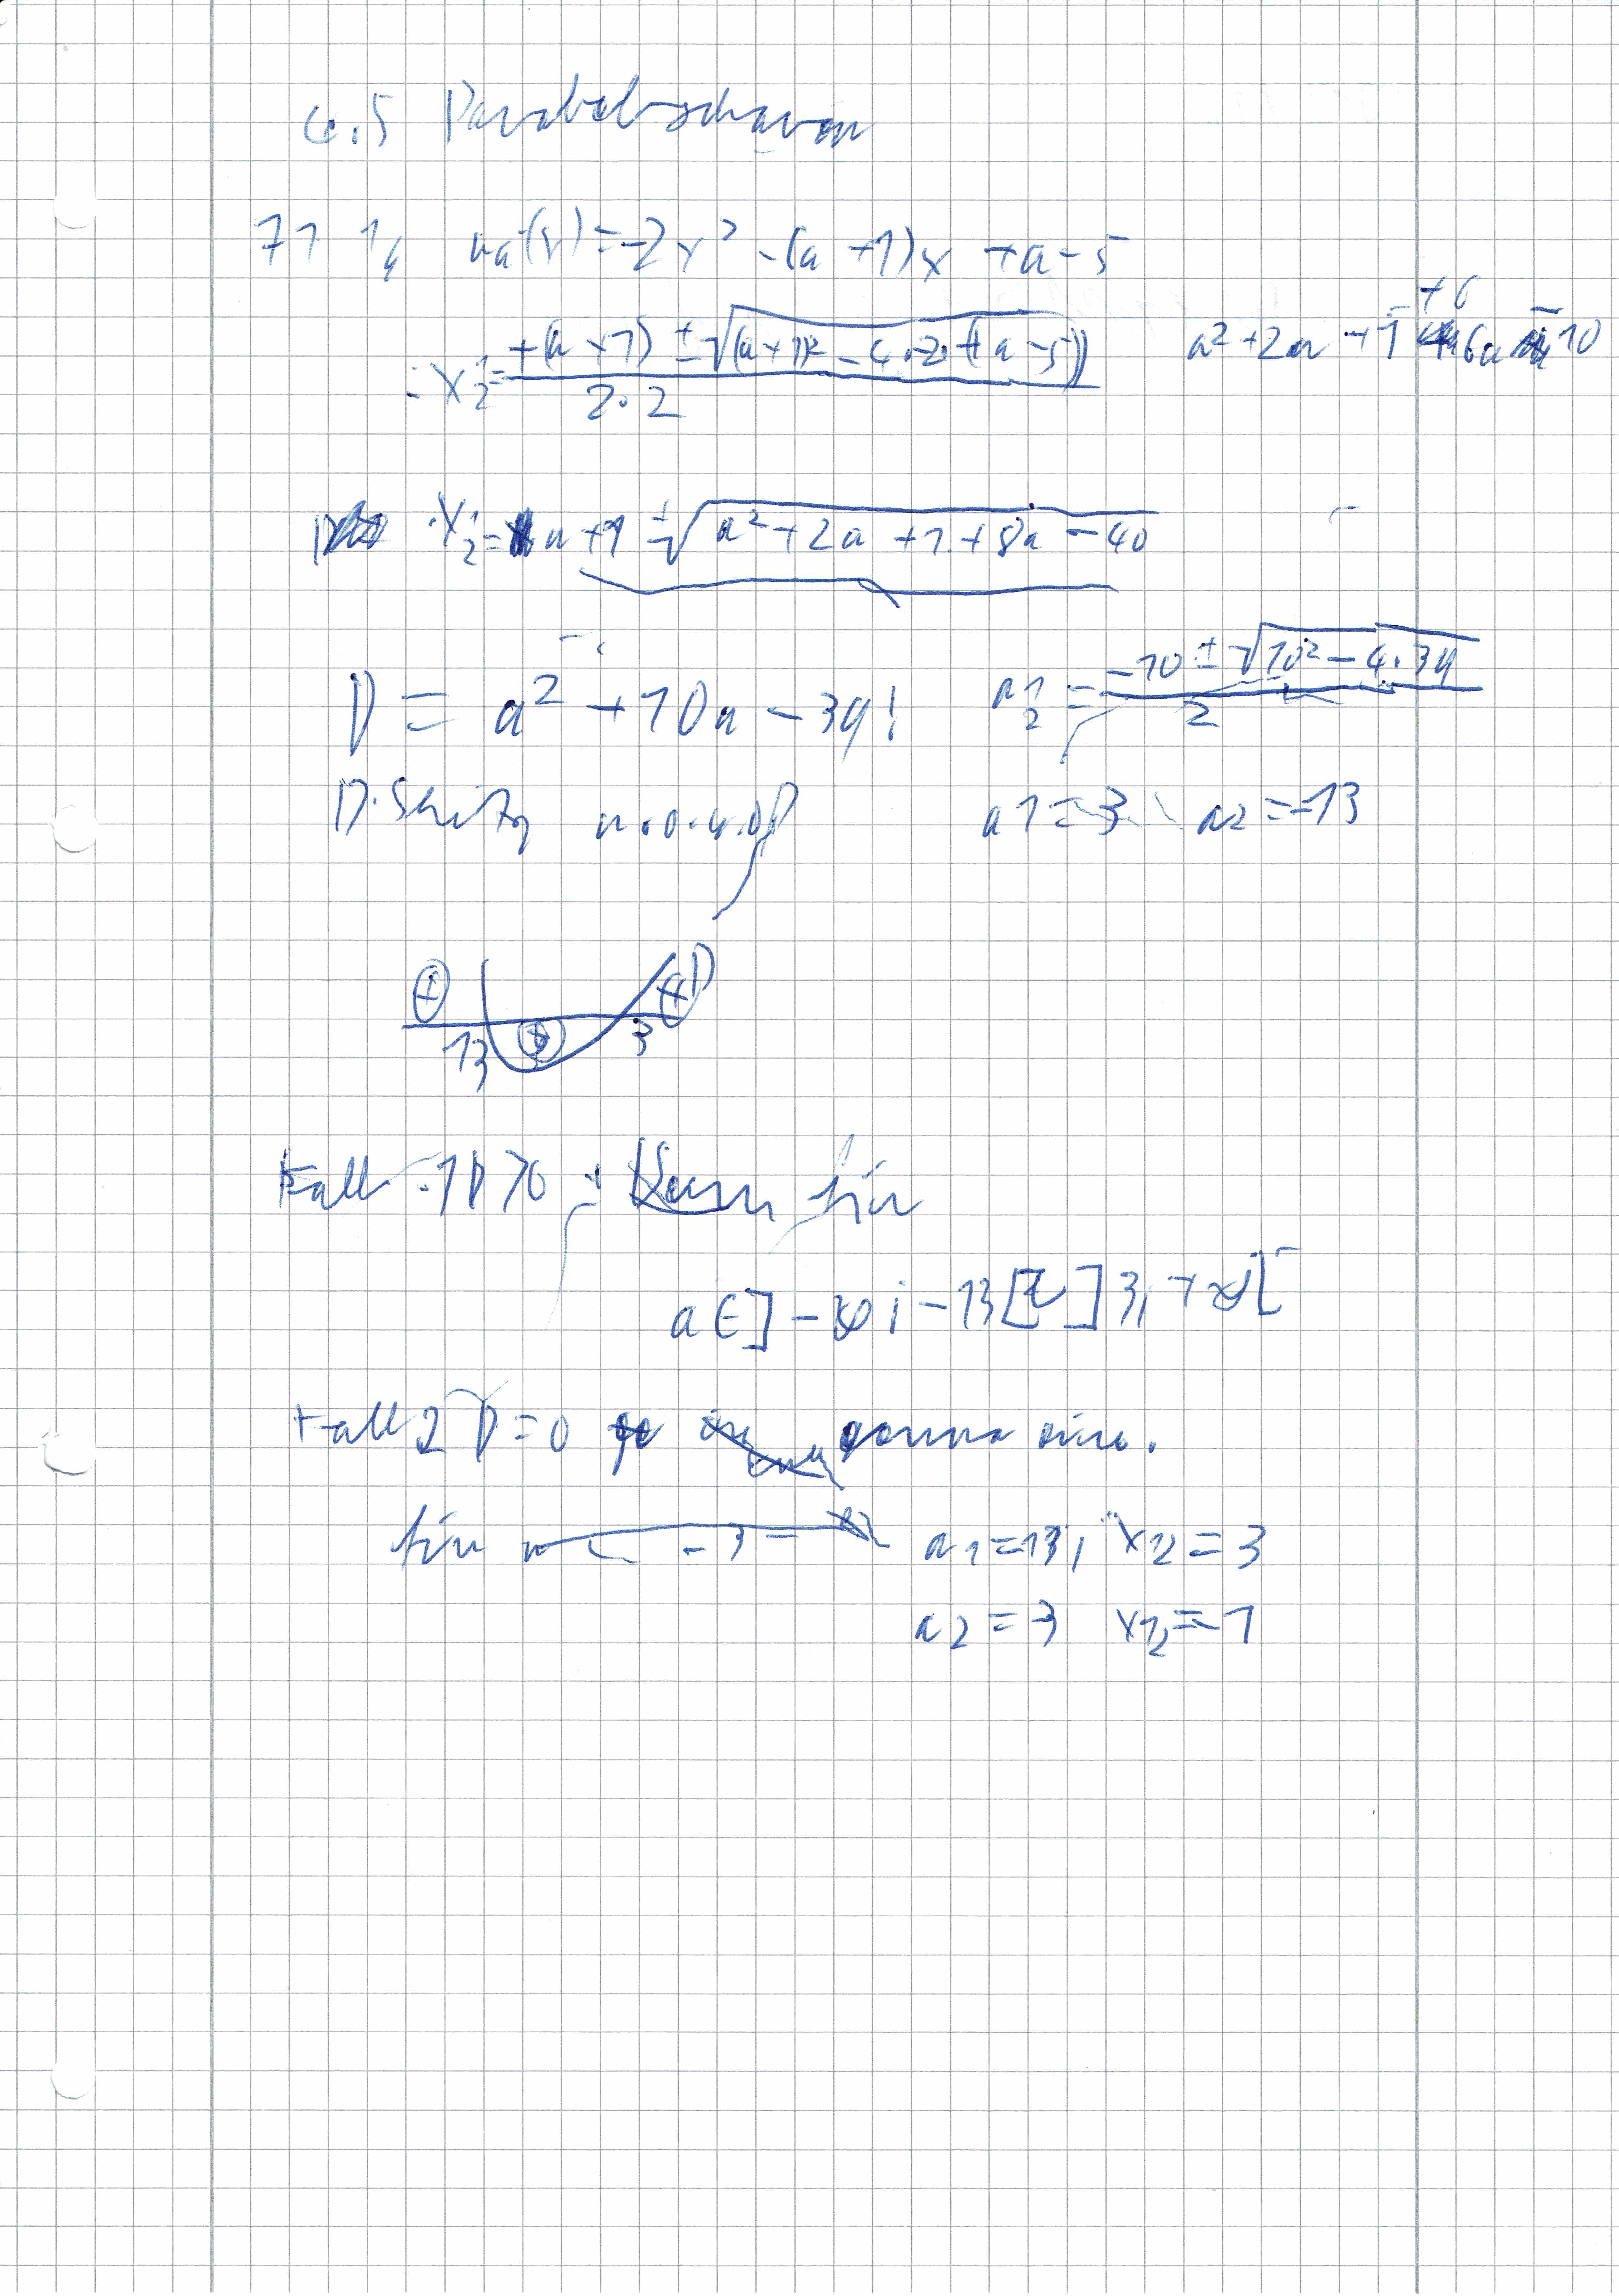 4.5 Parabelscharen
71 1/4 ua(x)=-2x² -(a+1)x +a-5
x1/2 = +(a+1) ± √((a+1)² - 4·-2·(a-5)) / 2·2 a²+2a+1 +6a-10
x1/2 = a+1 ± √(a²+2a+1+8a-40)
D = a²+10a-39! a1/2 = -10 ± √(10² - 4·39) / 2
D: n.o.g.of a1=3 a2=-13
+ +
13 3
Fall 1 D>0 für
a∈]-∞;-13[ ∪ ]3;+∞[
Fall 2 D=0 genau eine.
für a1=13; x1/2=3
a2=3 x1/2=-1